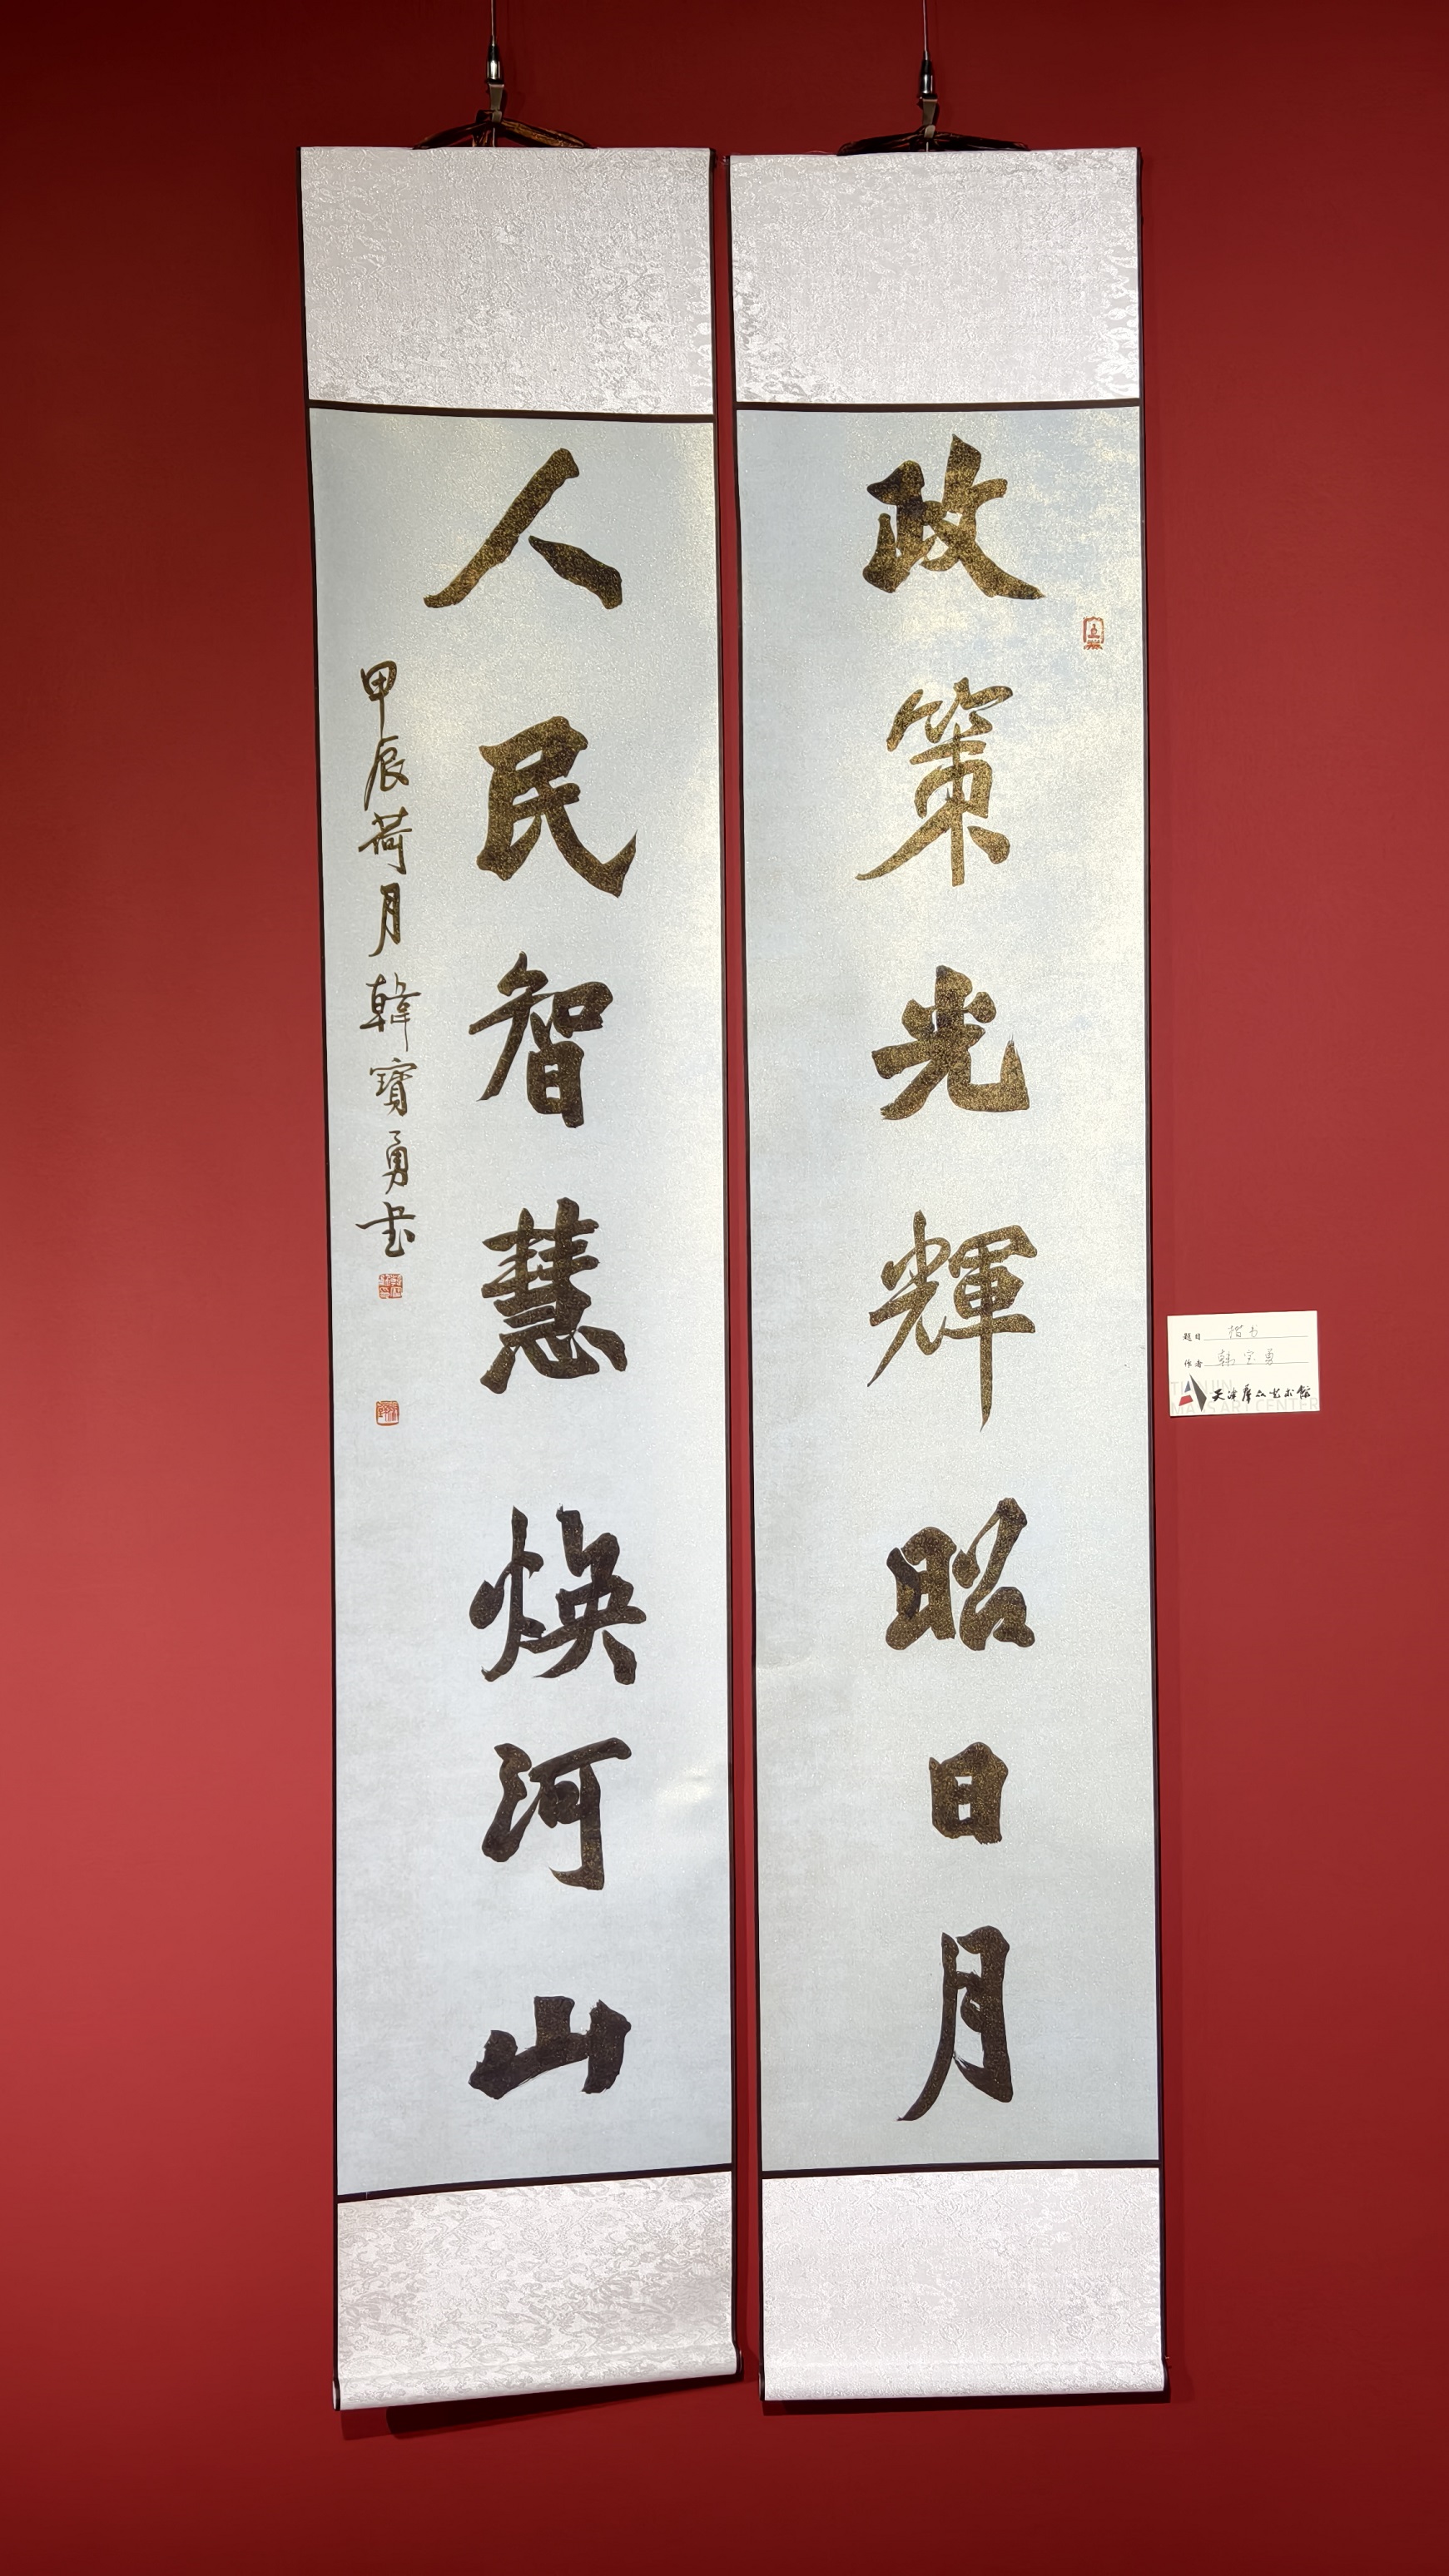 政策光輝昭日月
人民智慧焕河山
甲辰荷月韓寶勇书
题目 楷书
作者 韩宝勇
天津群众艺术馆
TIANJIN
MASS ART CENTER